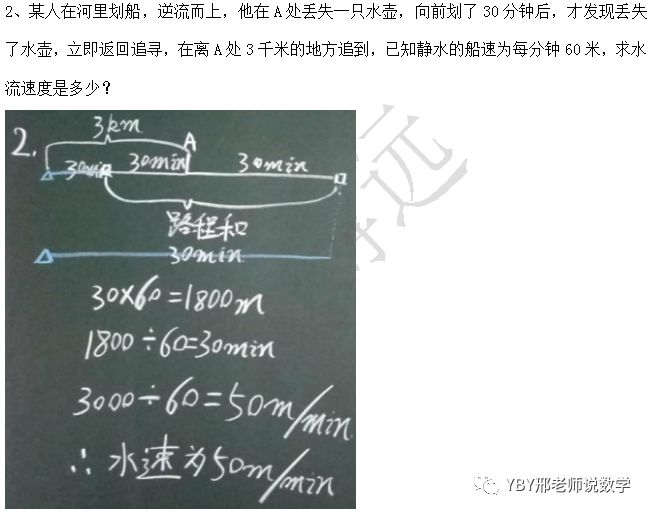 2、某人在河里划船，逆流而上，他在 A 处丢失一只水壶，向前划了 30 分钟后，才发现丢失
了水壶，立即返回追寻，在离 A 处 3 千米的地方追到，已知静水的船速为每分钟 60 米，求水
流速度是多少？
3km
2.
A
30min 30min 30min
路程和
30min
30×60=1800m
1800÷60=30min
3000÷60=50m/min
∴ 水速为50m/min
远
YBY邢老师说数学